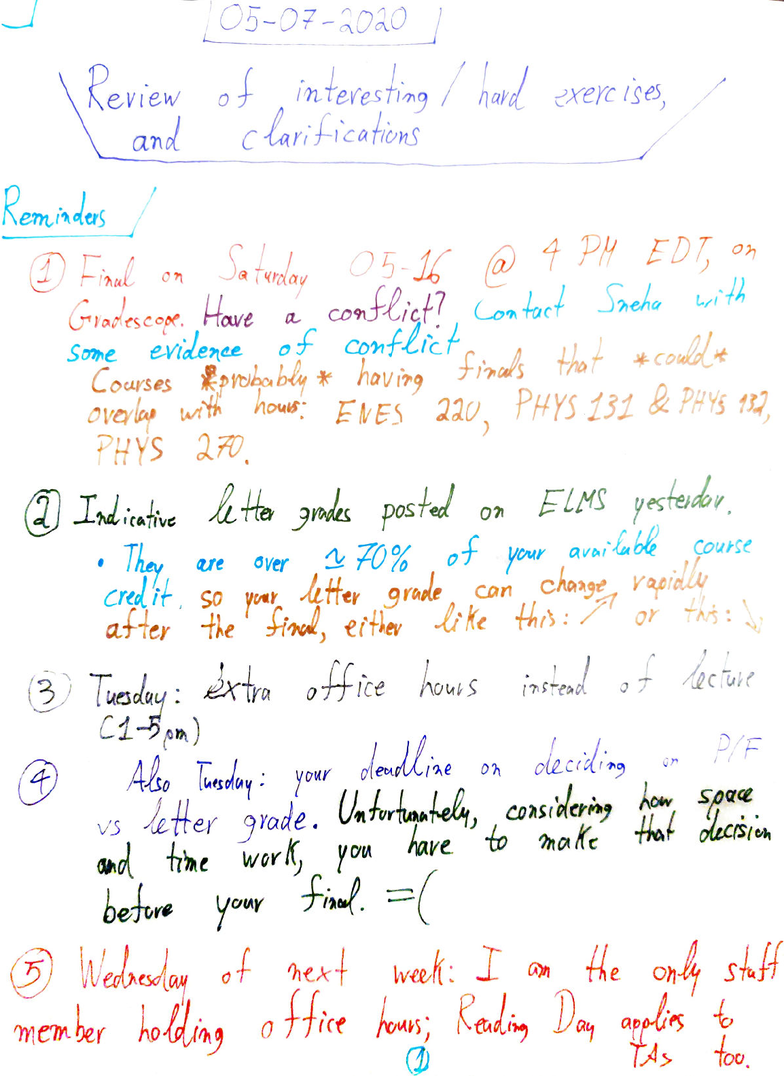 05-07-2020
Review of interesting/hard exercises,
and clarifications
Reminders
① Final on Saturday 05-16 @ 4 PM EDT, on
Gradescope. Have a conflict? Contact Sneha with
some evidence of conflict
Courses *probably* having finals that *could*
overlap with hours: ENES 220, PHYS 131 & PHYS 132,
PHYS 270.
② Indicative letter grades posted on ELMS yesterday.
• They are over ≃70% of your available course
credit, so your letter grade can change rapidly
after the final, either like this: ↗ or this: ↘
③ Tuesday: extra office hours instead of lecture
(1-5pm)
④ Also Tuesday: your deadline on deciding on P/F
vs letter grade. Unfortunately, considering how space
and time work, you have to make that decision
before your final. =(
⑤ Wednesday of next week: I am the only staff
member holding office hours; Reading Day applies to
TAs too.
①